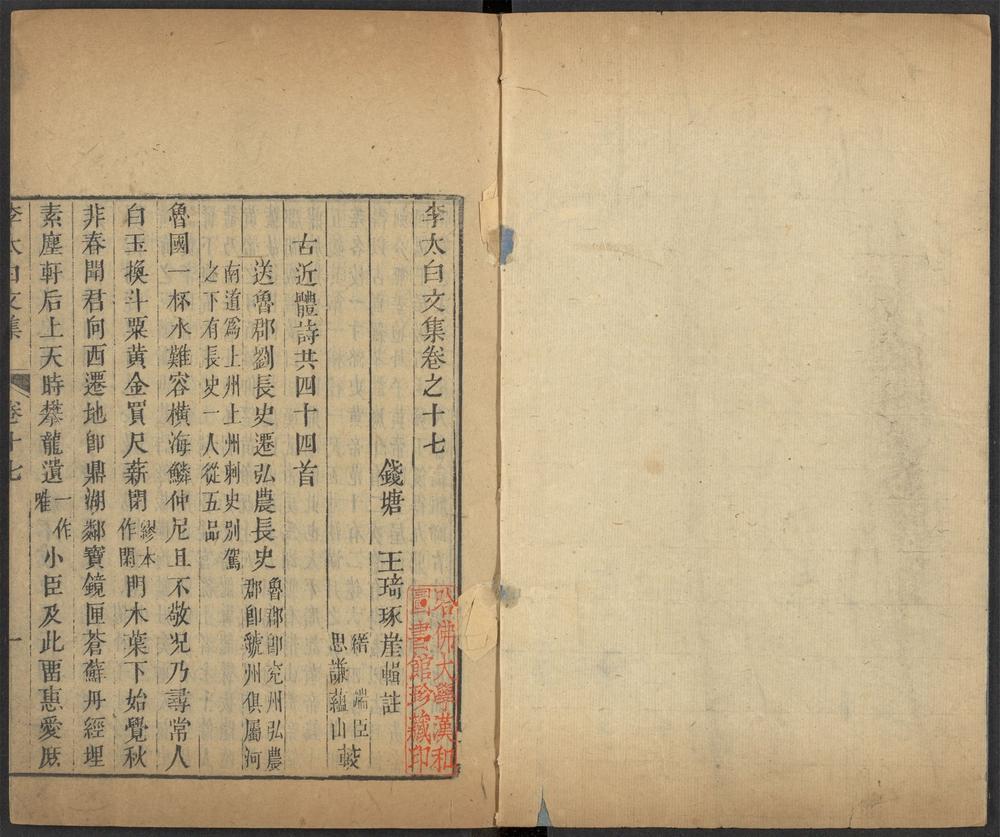 李太白文集卷之十七
錢塘 王琦琢崖輯註
縉 端臣
思謙蘊山 較
古近體詩共四十四首
送魯郡劉長史遷弘農長史 魯郡卽兖州弘農
郡卽虢州俱屬河
南道爲上州上州刺史別駕
之下有長史一人從五品
魯國一杯水難容橫海鱗仲尼且不敬況乃尋常人
白玉換斗粟黃金買尺薪閉 繆本
作閑 門木葉下始覺秋
非春聞君向西遷地卽鼎湖鄰寶鏡匣蒼蘚丹經埋
素塵軒后上天時攀龍遺 一作
唯 小臣及此畱惠愛庶
李太白文集 卷十七 一
哈佛大學漢和
圖書館珍藏印